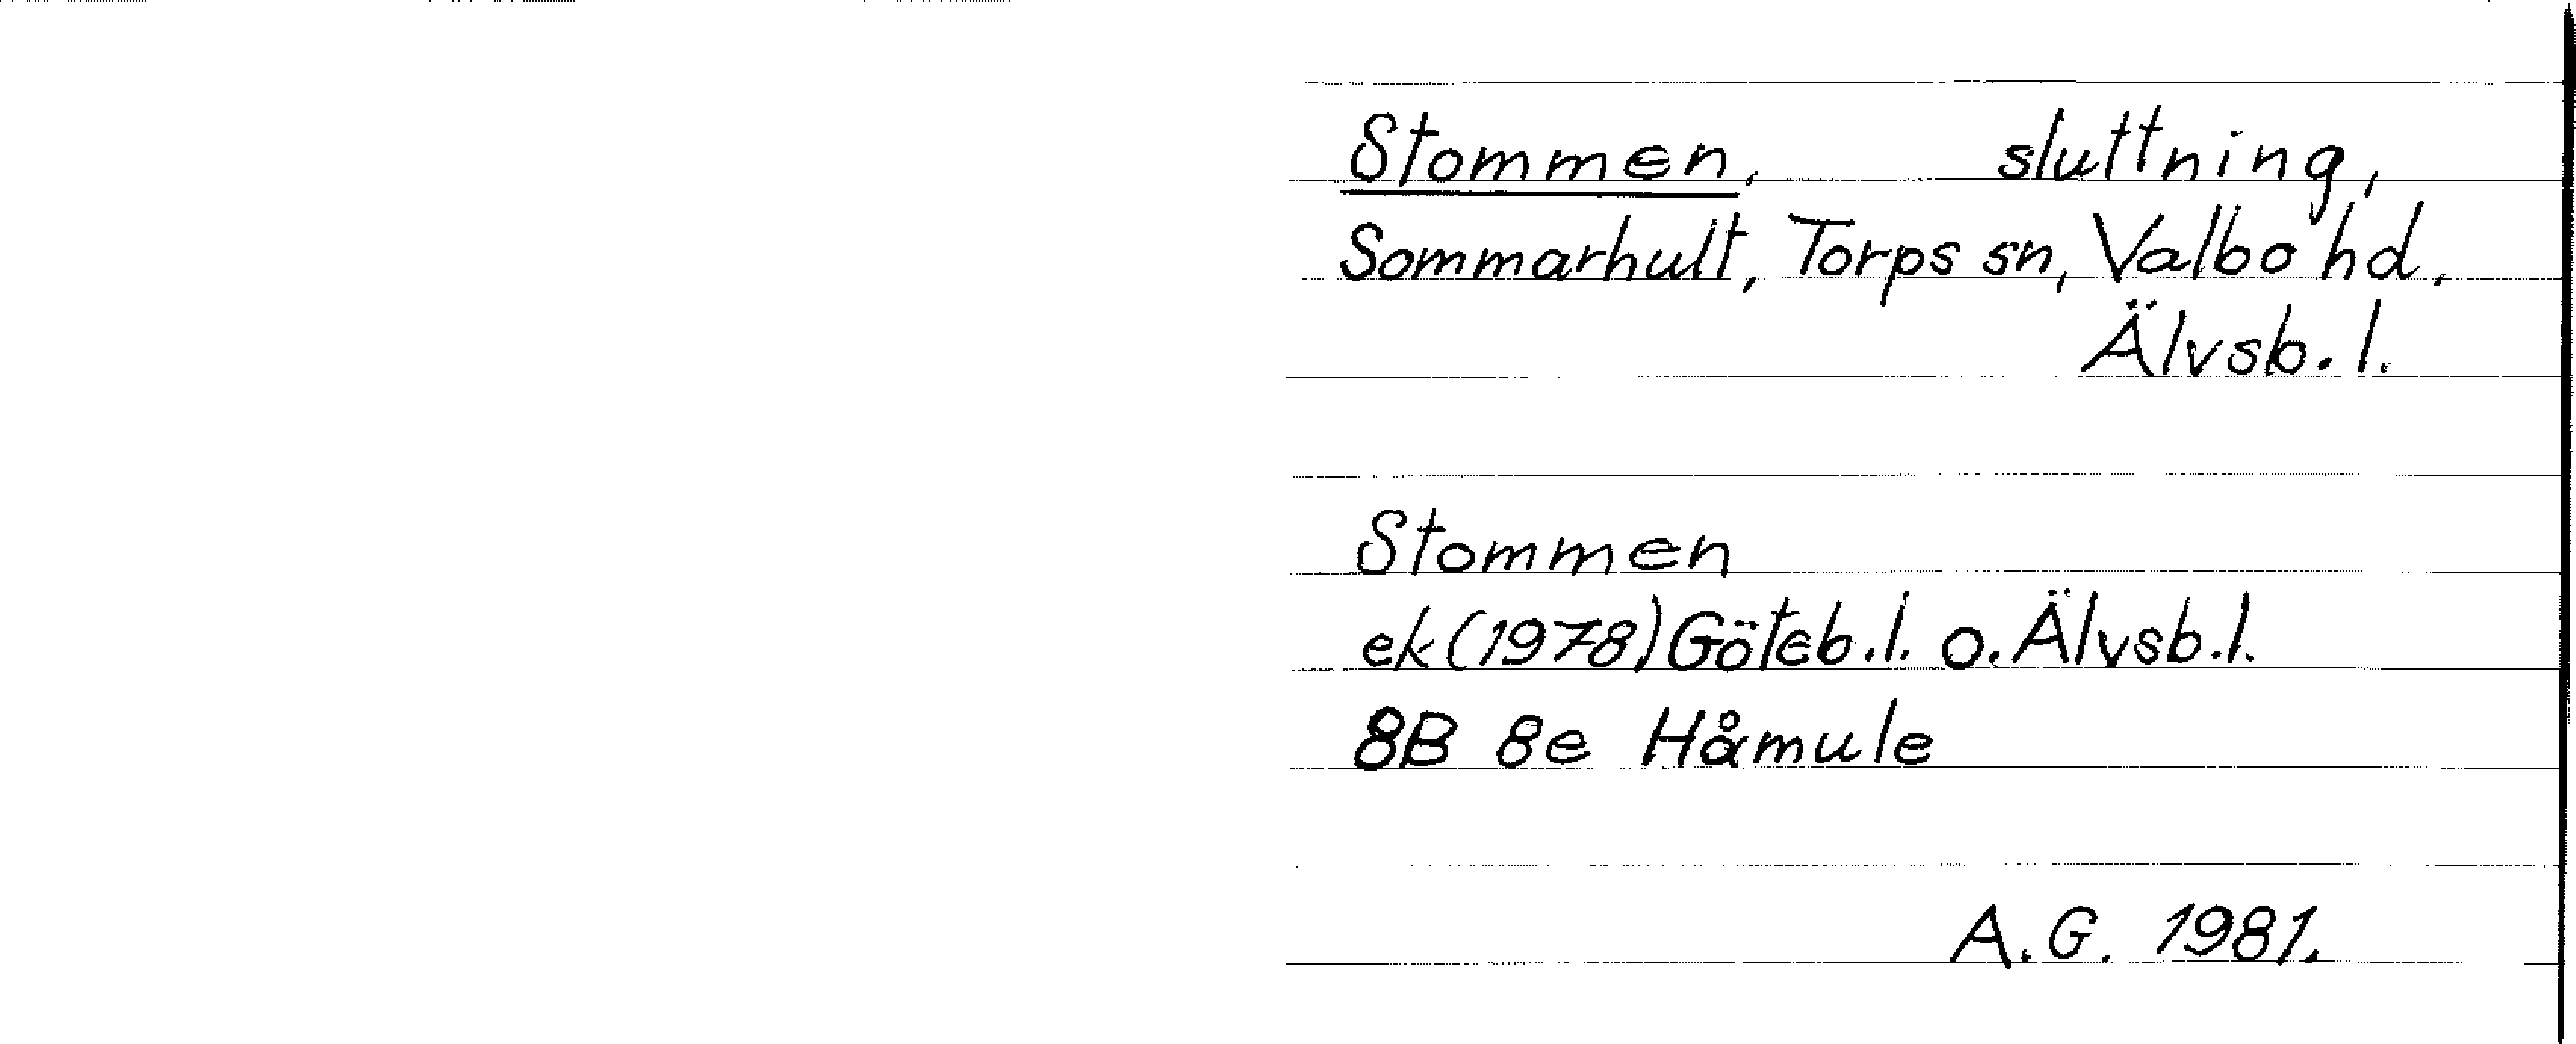 Stommen, sluttning,
Sommarhult, Torps sn, Valbo hd,
Älvsb. l.
Stommen
ek (1978) Göteb. l. o. Älvsb. l.
8B 8e Håmule
A.G. 1981.